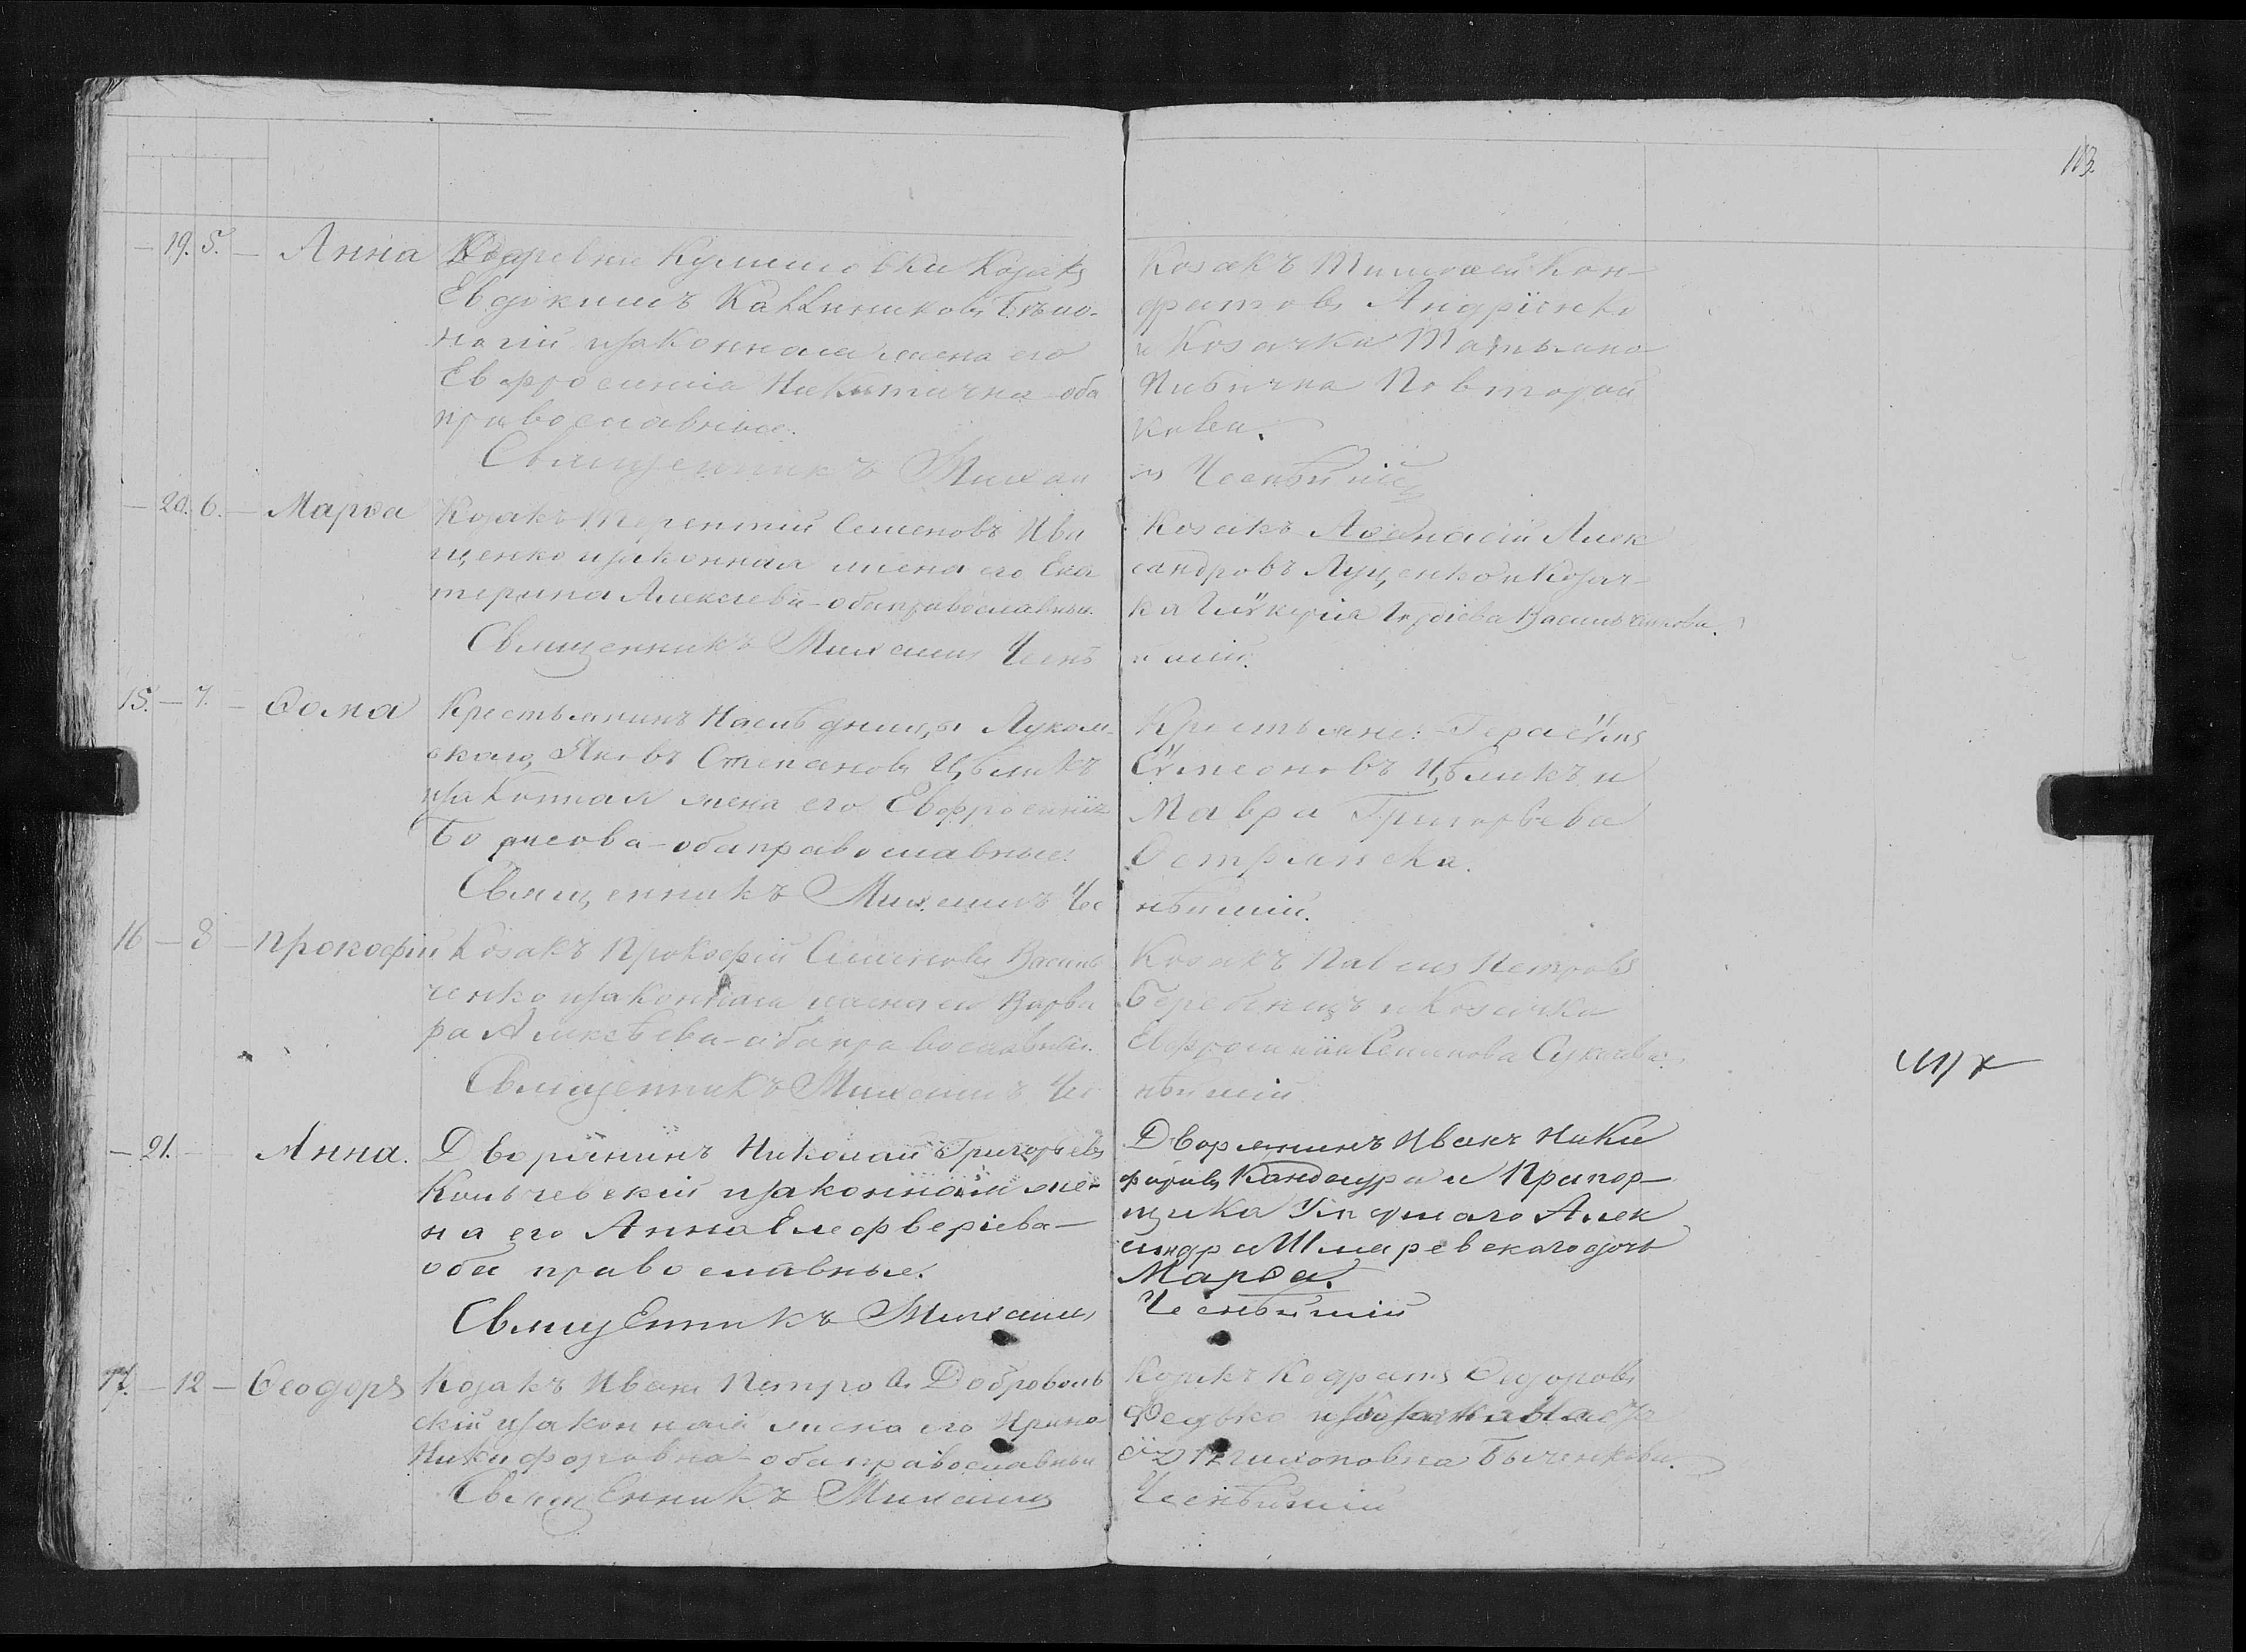 113.
— 19. 5. — Анна деревни Кулишовки Козакъ
Евдокимъ Каллиниковъ
законная жена его
Евфросинія Никитична оба
православные.
Священникъ Михаи
Козакъ Тимофей Кон-
дратовъ Андріенко
и Козачка Татьяна
По второй
лъ Чеснѣйшій
— 20. 6. — Марѳа Козакъ Терентій Семеновъ Ива
щенко и законная жена его Ека
терина Алексѣева — оба православные.
Священникъ Михаилъ Чеснѣ
Козакъ Аѳанасій Алек
сандровъ Луценко и Козач-
ка Гликерія Гордіева Васильченкова.
йшій.
15. — 7. — Ѳома Крестьянинъ Наслѣдницы Луком-
скаго, Яковъ Степановъ Цѣликъ
и законная жена его Евфросинія
Борисова — оба православные.
Священникъ Михаилъ Чес
Крестьяне: Герасѵмъ
Сѵмеоновъ Цѣликъ и
Мавра Григорьева
Острянска.
нѣйшій.
16 — 8 — Прокофій Козакъ Прокофій Симеоновъ Василь
ченко и законная жена его Варва
ра Алексѣева — оба православные.
Священникъ Михаилъ Чес
Козакъ Павелъ Петровъ
и Козачка
Евфросинія Семенова
нѣйшій
— 21. — Анна. Дворянинъ Николай Григорьевъ
Кольчевскій и законная же-
на его Анна Елефверіева —
оба православные.
Священникъ Михаилъ
Дворянинъ Иванъ Ники
форовъ Кандаура и Прапор-
щика Умершаго Алек
сандра Шмаревскаго дочь
Марѳа.
Чеснѣйшій
17. — 12 — Ѳеодоръ Козакъ Иванъ Петровъ Доброволь
скій и законная жена его Ирина
Никифоровна — оба православные
Священникъ Михаилъ
Козакъ Кодратъ Ѳедоровъ
Федько и
Тихоновна Быченкова.
Чеснѣйшій